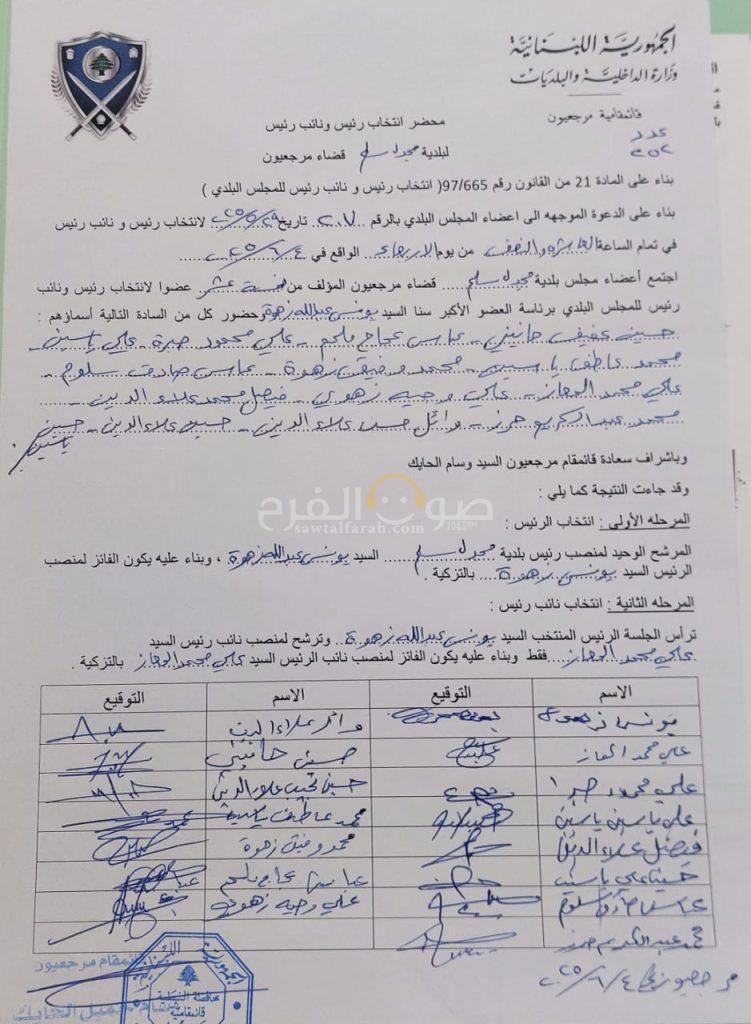 الجمهورية اللبنانية
وزارة الداخلية والبلديات
قائمقامية مرجعيون
عدد
٢٥٢
محضر انتخاب رئيس ونائب رئيس
لبلدية مجدل سلم قضاء مرجعيون
بناء على المادة 21 من القانون رقم 97/665( انتخاب رئيس و نائب رئيس للمجلس البلدي )
بناء على الدعوة الموجهه الى اعضاء المجلس البلدي بالرقم ٢٠٧ تاريخ ٢٠٢٥/٥/٢٩ لانتخاب رئيس و نائب رئيس
في تمام الساعة العاشرة والنصف من يوم الاربعاء الواقع في ٢٠٢٥/٦/٤
اجتمع أعضاء مجلس بلدية مجدل سلم قضاء مرجعيون المؤلف من خمسة عشر عضوا لانتخاب رئيس ونائب
رئيس للمجلس البلدي برئاسة العضو الأكبر سنا السيد يونس عبدالله زهوة وحضور كل من السادة التالية أسماؤهم :
حسين عفيف حانيني - عباس عجاج ملحم - علي محمود صبرة - علي ياسين -
محمد عاطف ياسين - محمد وفيق زهوة - عباس صادق سلوم -
علي محمد المعاز - علي وجيه زهوي - فيصل محمد علاء الدين -
محمد عبد الكريم حرز - وائل حسن علاء الدين - حسين علاء الدين - حسين
ياسين
وباشراف سعادة قائمقام مرجعيون السيد وسام الحايك
وقد جاءت النتيجة كما يلي :
صوت الفرح
sawtalfarah.com
المرحله الأولى : انتخاب الرئيس :
المرشح الوحيد لمنصب رئيس بلدية مجدل سلم السيد يونس عبدالله زهوة ، وبناء عليه يكون الفائز لمنصب
الرئيس السيد يونس زهوة بالتزكية .
المرحله الثانية : انتخاب نائب رئيس :
ترأس الجلسة الرئيس المنتخب السيد يونس عبدالله زهوة وترشح لمنصب نائب رئيس السيد
علي محمد المعاز فقط وبناء عليه يكون الفائز لمنصب نائب الرئيس السيد علي محمد المعاز بالتزكية .
الاسم التوقيع الاسم التوقيع
يونس زهوة وائل علاء الدين
علي محمد المعاز حسين حانيني
علي محمود صبرا حسين نجيب علاء الدين
علي ياسين ياسين محمد عاطف ياسين
فيصل علاء الدين محمد وفيق زهوة
حسين علي ياسين عباس عجاج ملحم
عباس صادق سلوم علي وجيه زهوي
محمد عبد الكريم حرز
مرجعيون في ٢٠٢٥/٦/٤
قائمقام مرجعيون
الجمهورية
محافظة النبطية
قائمقامية